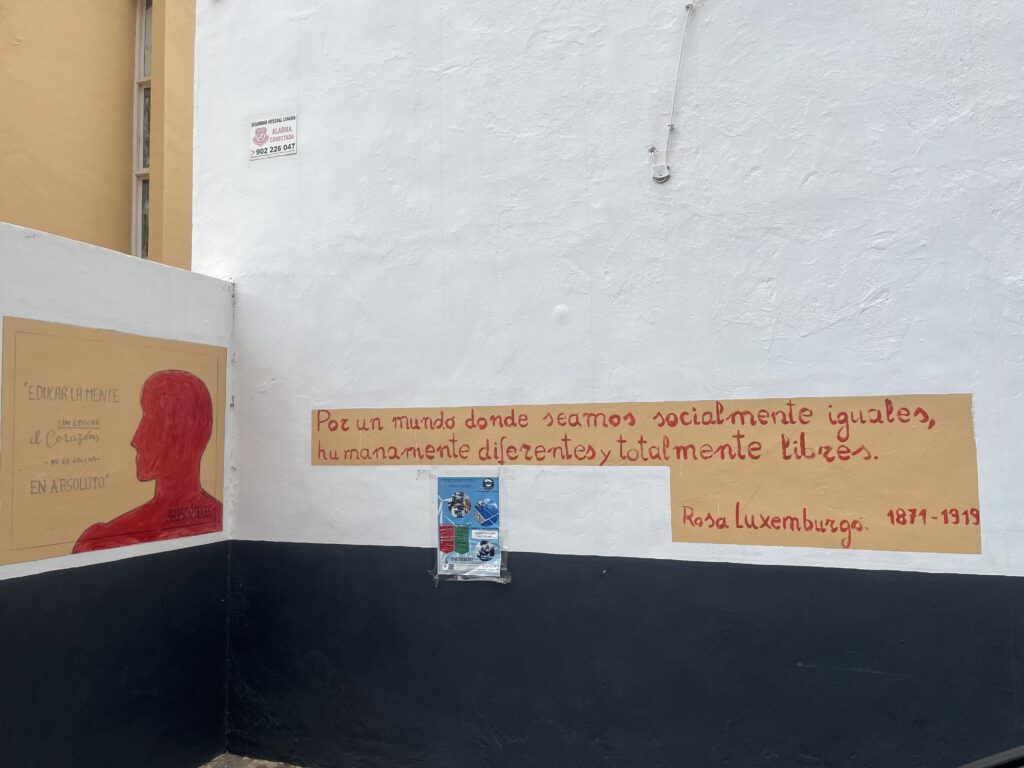 SEGURIDAD INTEGRAL CANARIA
ALARMA
CONECTADA
902 226 047
"EDUCAR LA MENTE
SIN EDUCAR
el Corazón,
- NO ES EDUCAR -
EN ABSOLUTO."
ARISTÓTELES
Por un mundo donde seamos socialmente iguales,
humanamente diferentes y totalmente libres.
Rosa Luxemburgo. 1871-1919